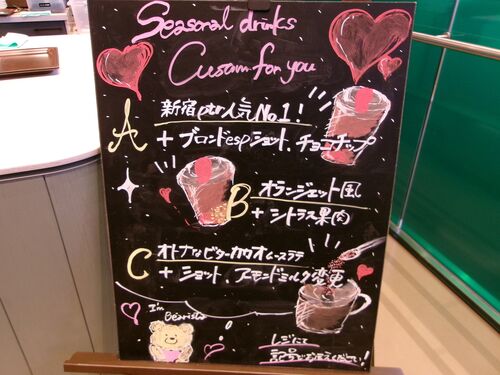 Seasonal drinks
Custom for you
A 新宿ptr人気No.1!
+ ブロンドespショット、チョコチップ
B オランジェット風
+ シトラス果肉
C オトナなビターカカオムースラテ
+ ショット、アーモンドミルク変更
I'm
Bearista
レジにて
記号でお伝えください!